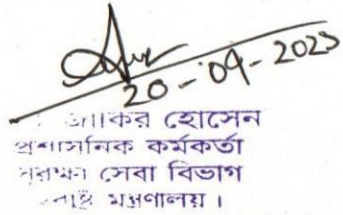 20-09-2023
জাকির হোসেন
প্রশাসনিক কর্মকর্তা
সুরক্ষা সেবা বিভাগ
মন্ত্রণালয় ।